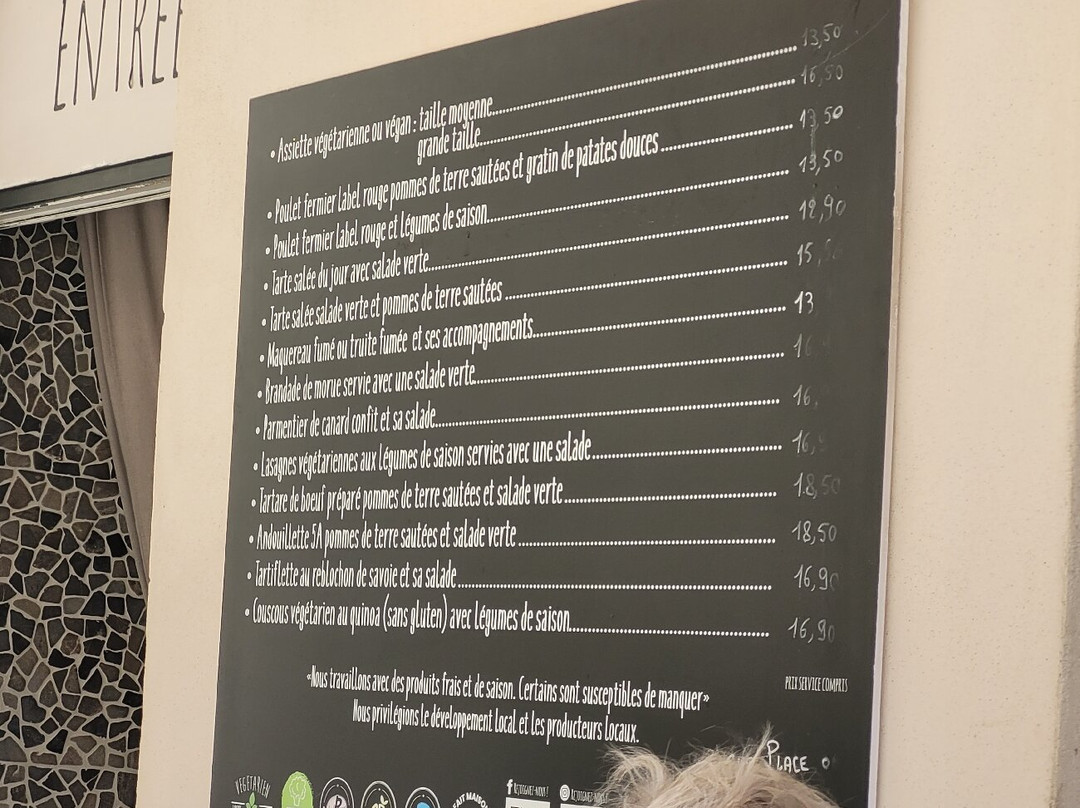 ENTRÉE
• Assiette végétarienne ou végan : taille moyenne........ 13,50
grande taille........ 16,50
• Poulet fermier Label rouge pommes de terre sautées et gratin de patates douces........ 13,50
• Poulet fermier Label rouge et légumes de saison........ 13,50
• Tarte salée du jour avec salade verte........ 12,90
• Tarte salée salade verte et pommes de terre sautées ........ 15,
• Maquereau fumé ou truite fumée et ses accompagnements........ 13
• Brandade de morue servie avec une salade verte........
• Parmentier de canard confit et sa salade........ 16,
• Lasagnes végétariennes aux légumes de saison servies avec une salade........ 16,
• Tartare de boeuf préparé pommes de terre sautées et salade verte........ 18,50
• Andouillette 5A pommes de terre sautées et salade verte ........ 18,50
• Tartiflette au reblochon de savoie et sa salade........ 16,90
• Couscous végétarien au quinoa (sans gluten) avec légumes de saison........ 16,90
PRIX SERVICE COMPRIS
«Nous travaillons avec des produits frais et de saison. Certains sont susceptibles de manquer»
Nous privilégions le développement Local et Les producteurs Locaux.
PLACE
VEGETARIEN
FAIT MAISON
REJOIGNEZ-NOUS !
REJOIGNEZ-NOUS !